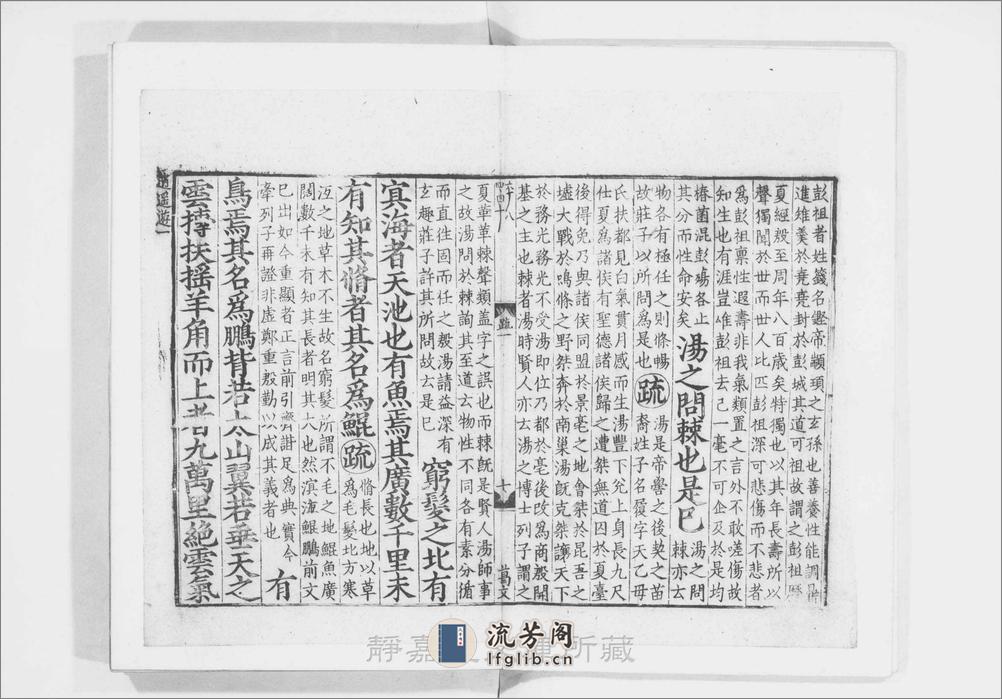 彭祖者姓籛名鏗帝顓頊之玄孫也善養性能調鼎
進雉羹於堯堯封於彭城其道可祖故謂之彭祖歷
夏經殷至周年八百歲矣特獨也以其年長壽所以
聲獨聞於世而世人比匹彭祖深可悲傷而不悲者
爲彭祖稟性遐壽非我氣類置之言外不敢嗟傷故
知生也有涯豈唯彭祖去已一毫不可企及於是均
椿菌混彭殤各止
其分而性命安矣
湯之問棘也是已
湯之問
棘亦云
物各有極任之則條暢
故莊子以所問爲是也
疏
湯是帝嚳之後契之苗
裔姓子名履字天乙母
氏扶都見白氣貫月感而生湯豐下兊上身長九尺
仕夏爲諸侯有聖德諸侯歸之遭桀無道囚於夏臺
後得免乃與諸侯同盟於景亳之地會桀於昆吾之
墟大戰於鳴條之野桀奔於南巢湯旣克桀讓天下
於務光務光不受湯即位乃都於亳後改爲商殷開
基之主也棘者湯時賢人亦云湯之博士列子謂之
十
夏革革棘聲類盖字之誤也而棘旣是賢人湯師事
之故湯問於棘詢其至道云物性不同各有素分循
而直往因而任之殷湯請益深有
玄趣莊子許其所問故云是已
窮髮之北有
冥海者天池也有魚焉其廣數千里未
有知其脩者其名爲鯤
疏
脩長也地以草
爲毛髮北方寒
沍之地草木不生故名窮髮所謂不毛之地鯤魚廣
闊數千未有知其長者明其大也然溟海鯤鵬前文
已出如今重顯者正言前引齊諧足爲典實今
牽列子再證非虛鄭重殷勤以成其義者也
有
鳥焉其名爲鵬背若太山翼若垂天之
雲摶扶摇羊角而上者九萬里絕雲氣
逍遥遊一
靜嘉堂文庫所藏
流芳阁
lfglib.cn